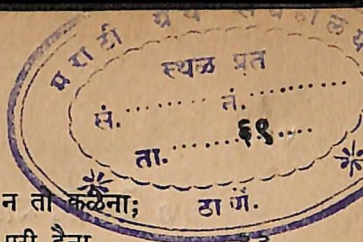 मराठी ग्रंथ संग्रहालय
स्थळ प्रत
सं. ........ नं. ........
ता. ........ ६९ ....
ठाणें.
न तो कळेना;